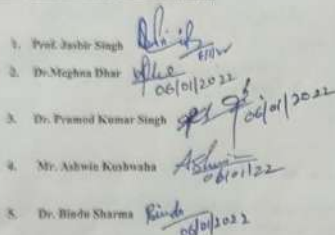 1. Prof. Jasbir Singh
2. Dr. Meghna Dhar 06/01/2022
3. Dr. Pramod Kumar Singh 06/01/2022
4. Mr. Ashwin Kushwaha 06/01/22
5. Dr. Bindu Sharma Bindu 06/01/2022